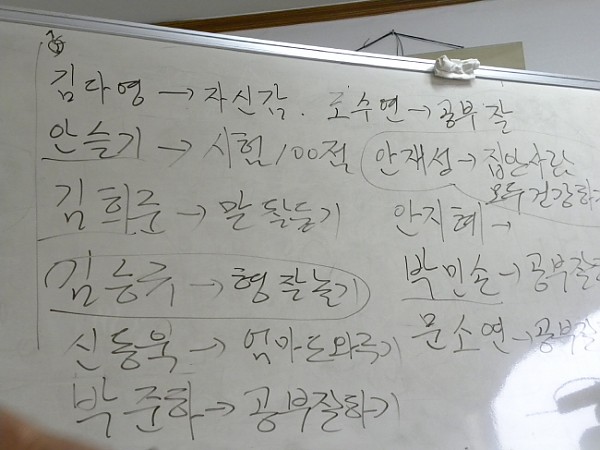 김다영 → 자신감. 조수연 → 공부 잘
안슬기 → 시험 100점 안재성 → 집안사람 모두 건강하기
김희준 → 말 잘듣기 안지혜 →
김능류 → 형 잘놀기 박민솔 → 공부잘하
신동욱 → 엄마도와주기 문소연 → 공부잘
박준하 → 공부잘하기